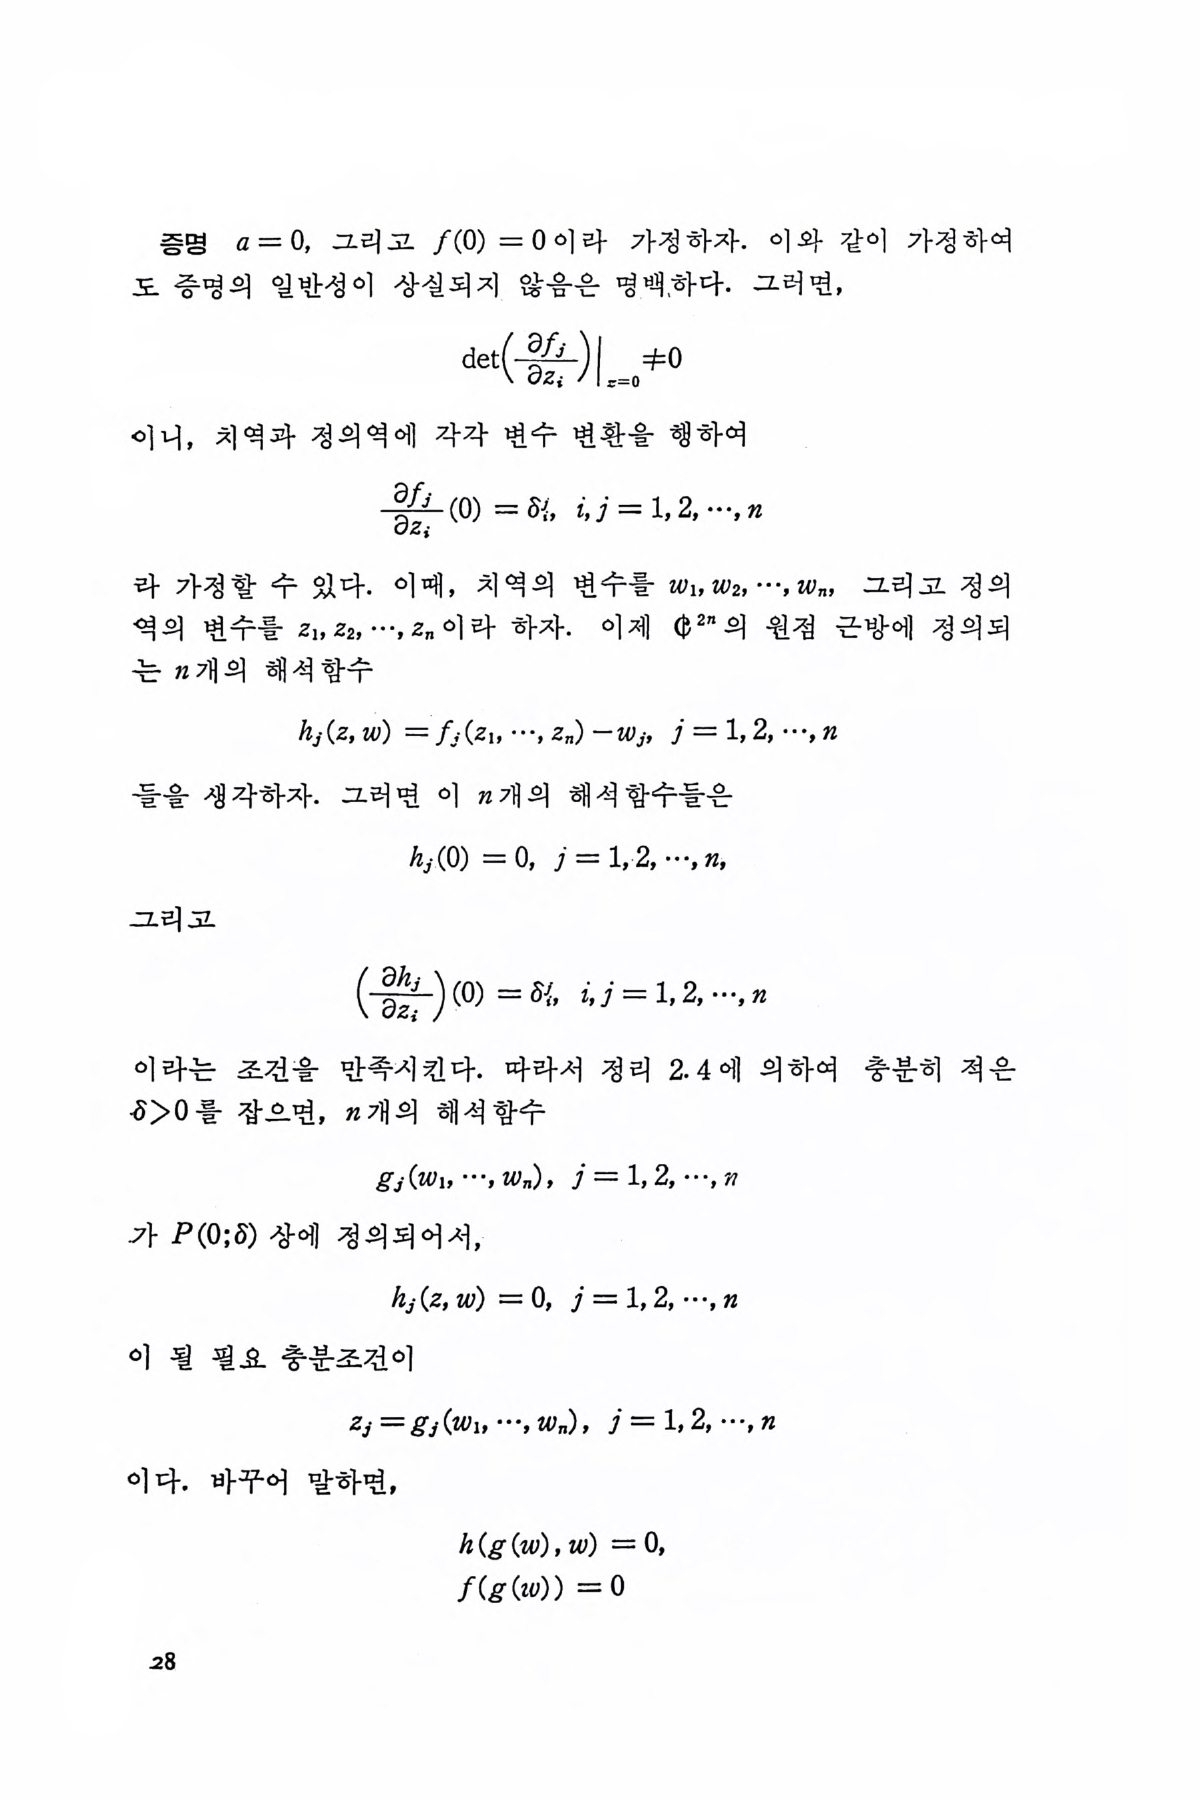 증명 a = 0, 그리고 f(0) = 0이라 가정하자. 이와 같이 가정하여
도 증명의 일반성이 상실되지 않음은 명백하다. 그러면,
det(∂f_j/∂z_i)|_{z=0} ≠ 0
이니, 치역과 정의역에 각각 변수 변환을 행하여
∂f_j/∂z_i (0) = δ_i^j, i, j = 1, 2, ⋯, n
라 가정할 수 있다. 이때, 치역의 변수를 w₁, w₂, ⋯, wₙ, 그리고 정의
역의 변수를 z₁, z₂, ⋯, zₙ이라 하자. 이제 ℂ²ⁿ의 원점 근방에 정의되
는 n개의 해석함수
h_j(z, w) = f_j(z₁, ⋯, zₙ) − w_j, j = 1, 2, ⋯, n
들을 생각하자. 그러면 이 n개의 해석함수들은
h_j(0) = 0, j = 1, 2, ⋯, n,
그리고
(∂h_j/∂z_i)(0) = δ_i^j, i, j = 1, 2, ⋯, n
이라는 조건을 만족시킨다. 따라서 정리 2.4에 의하여 충분히 적은
δ>0를 잡으면, n개의 해석함수
g_j(w₁, ⋯, wₙ), j = 1, 2, ⋯, n
가 P(0;δ)상에 정의되어서,
h_j(z, w) = 0, j = 1, 2, ⋯, n
이 될 필요 충분조건이
z_j = g_j(w₁, ⋯, wₙ), j = 1, 2, ⋯, n
이다. 바꾸어 말하면,
h(g(w), w) = 0,
f(g(w)) = 0
28